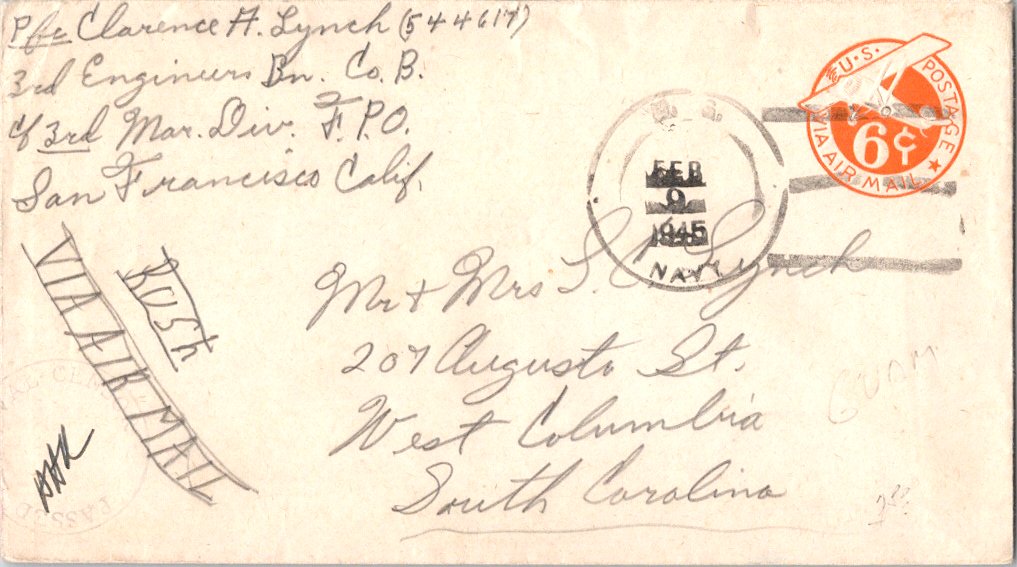 Pfc Clarence A. Lynch (544617)
3rd Engineers Bn. Co. B.
c/o 3rd Mar. Div. F.P.O.
San Francisco Calif.
U.S. POSTAGE
VIA AIR MAIL
6¢
FEB
9
1945
NAVY
Rush
VIA AIR MAIL
Mr + Mrs S. C. Lynch
207 Augusta St.
West Columbia
South Carolina
GUAM
PASSED